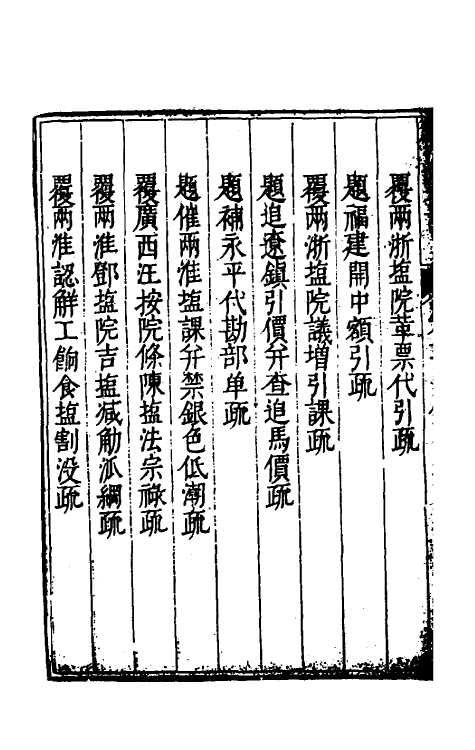 覆兩浙塩院革票代引疏
題福建開中額引疏
覆兩浙塩院議增引課疏
題追遼鎮引價并查追馬價疏
題補永平代勘部单疏
題催兩淮塩課并禁銀色低潮疏
覆廣西汪按院條陳塩法宗祿疏
覆兩淮鄧塩院吉塩減觔派綱疏
覆兩淮認觧工餉食塩割没疏